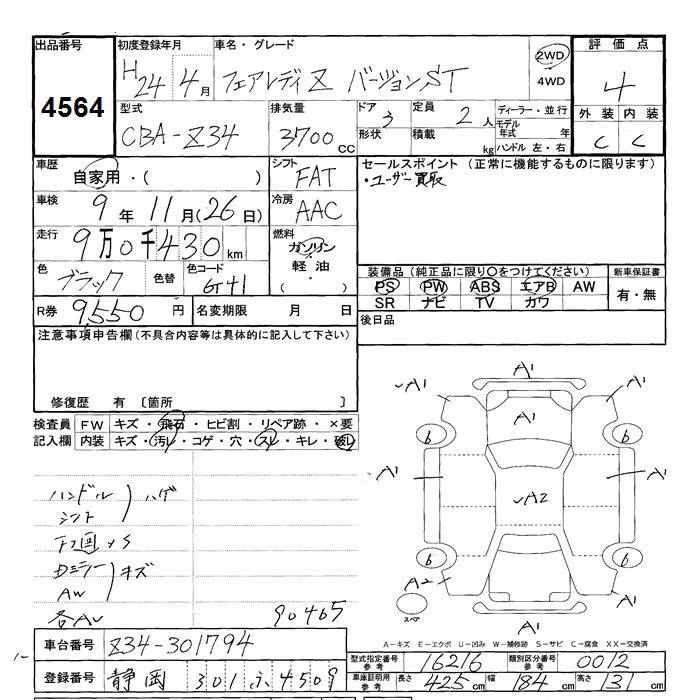 出品番号 初度登録年月 車名・グレード 評価点
4564 H24 4月 フェアレディZ バージョンST 2WD 4WD 4
型式 排気量 ドア 3 定員 2人 ディーラー・並行 外装 内装
CBA-Z34 3700CC 形状 積載 kg モデル年式 年 ハンドル 左・右 C C
車歴 自家用・( ) シフト FAT セールスポイント (正常に機能するものに限ります)
・ユーザー買取
車検 9年11月(26日) 冷房 AAC
走行 9万0千430km 燃料 ガソリン 軽油 ( )
色 ブラック 色替 色コード G41
装備品 (純正品に限り○をつけてください) 新車保証書
PS PW ABS エアB AW 有・無
SR ナビ TV カワ
R券 9550円 名変期限 月 日 後日品
注意事項申告欄 (不具合内容等は具体的に記入して下さい)
修復歴 有 〔箇所 〕
検査員 FW キズ・飛石・ヒビ割・リペア跡・×要
記入欄 内装 キズ・汚レ・コゲ・穴・スレ・キレ・破レ
ハンドル
シフト
ハゲ
下回
S
Dミラー
AW
キズ
90465
A1
A1 A1 A1
6 6
A1 A2 A1
6 6
A2 A1
A1
スペア
A-キズ E-エクボ U-凹み W-補修跡 S-サビ C-腐食 XX-交換済
車台番号 Z34-301794
登録番号 静岡 301 ふ 4509
型式指定番号 参考 16216 類別区分番号 参考 0012
車庫証明用 参考 長さ 425cm 幅 184cm 高さ 131cm